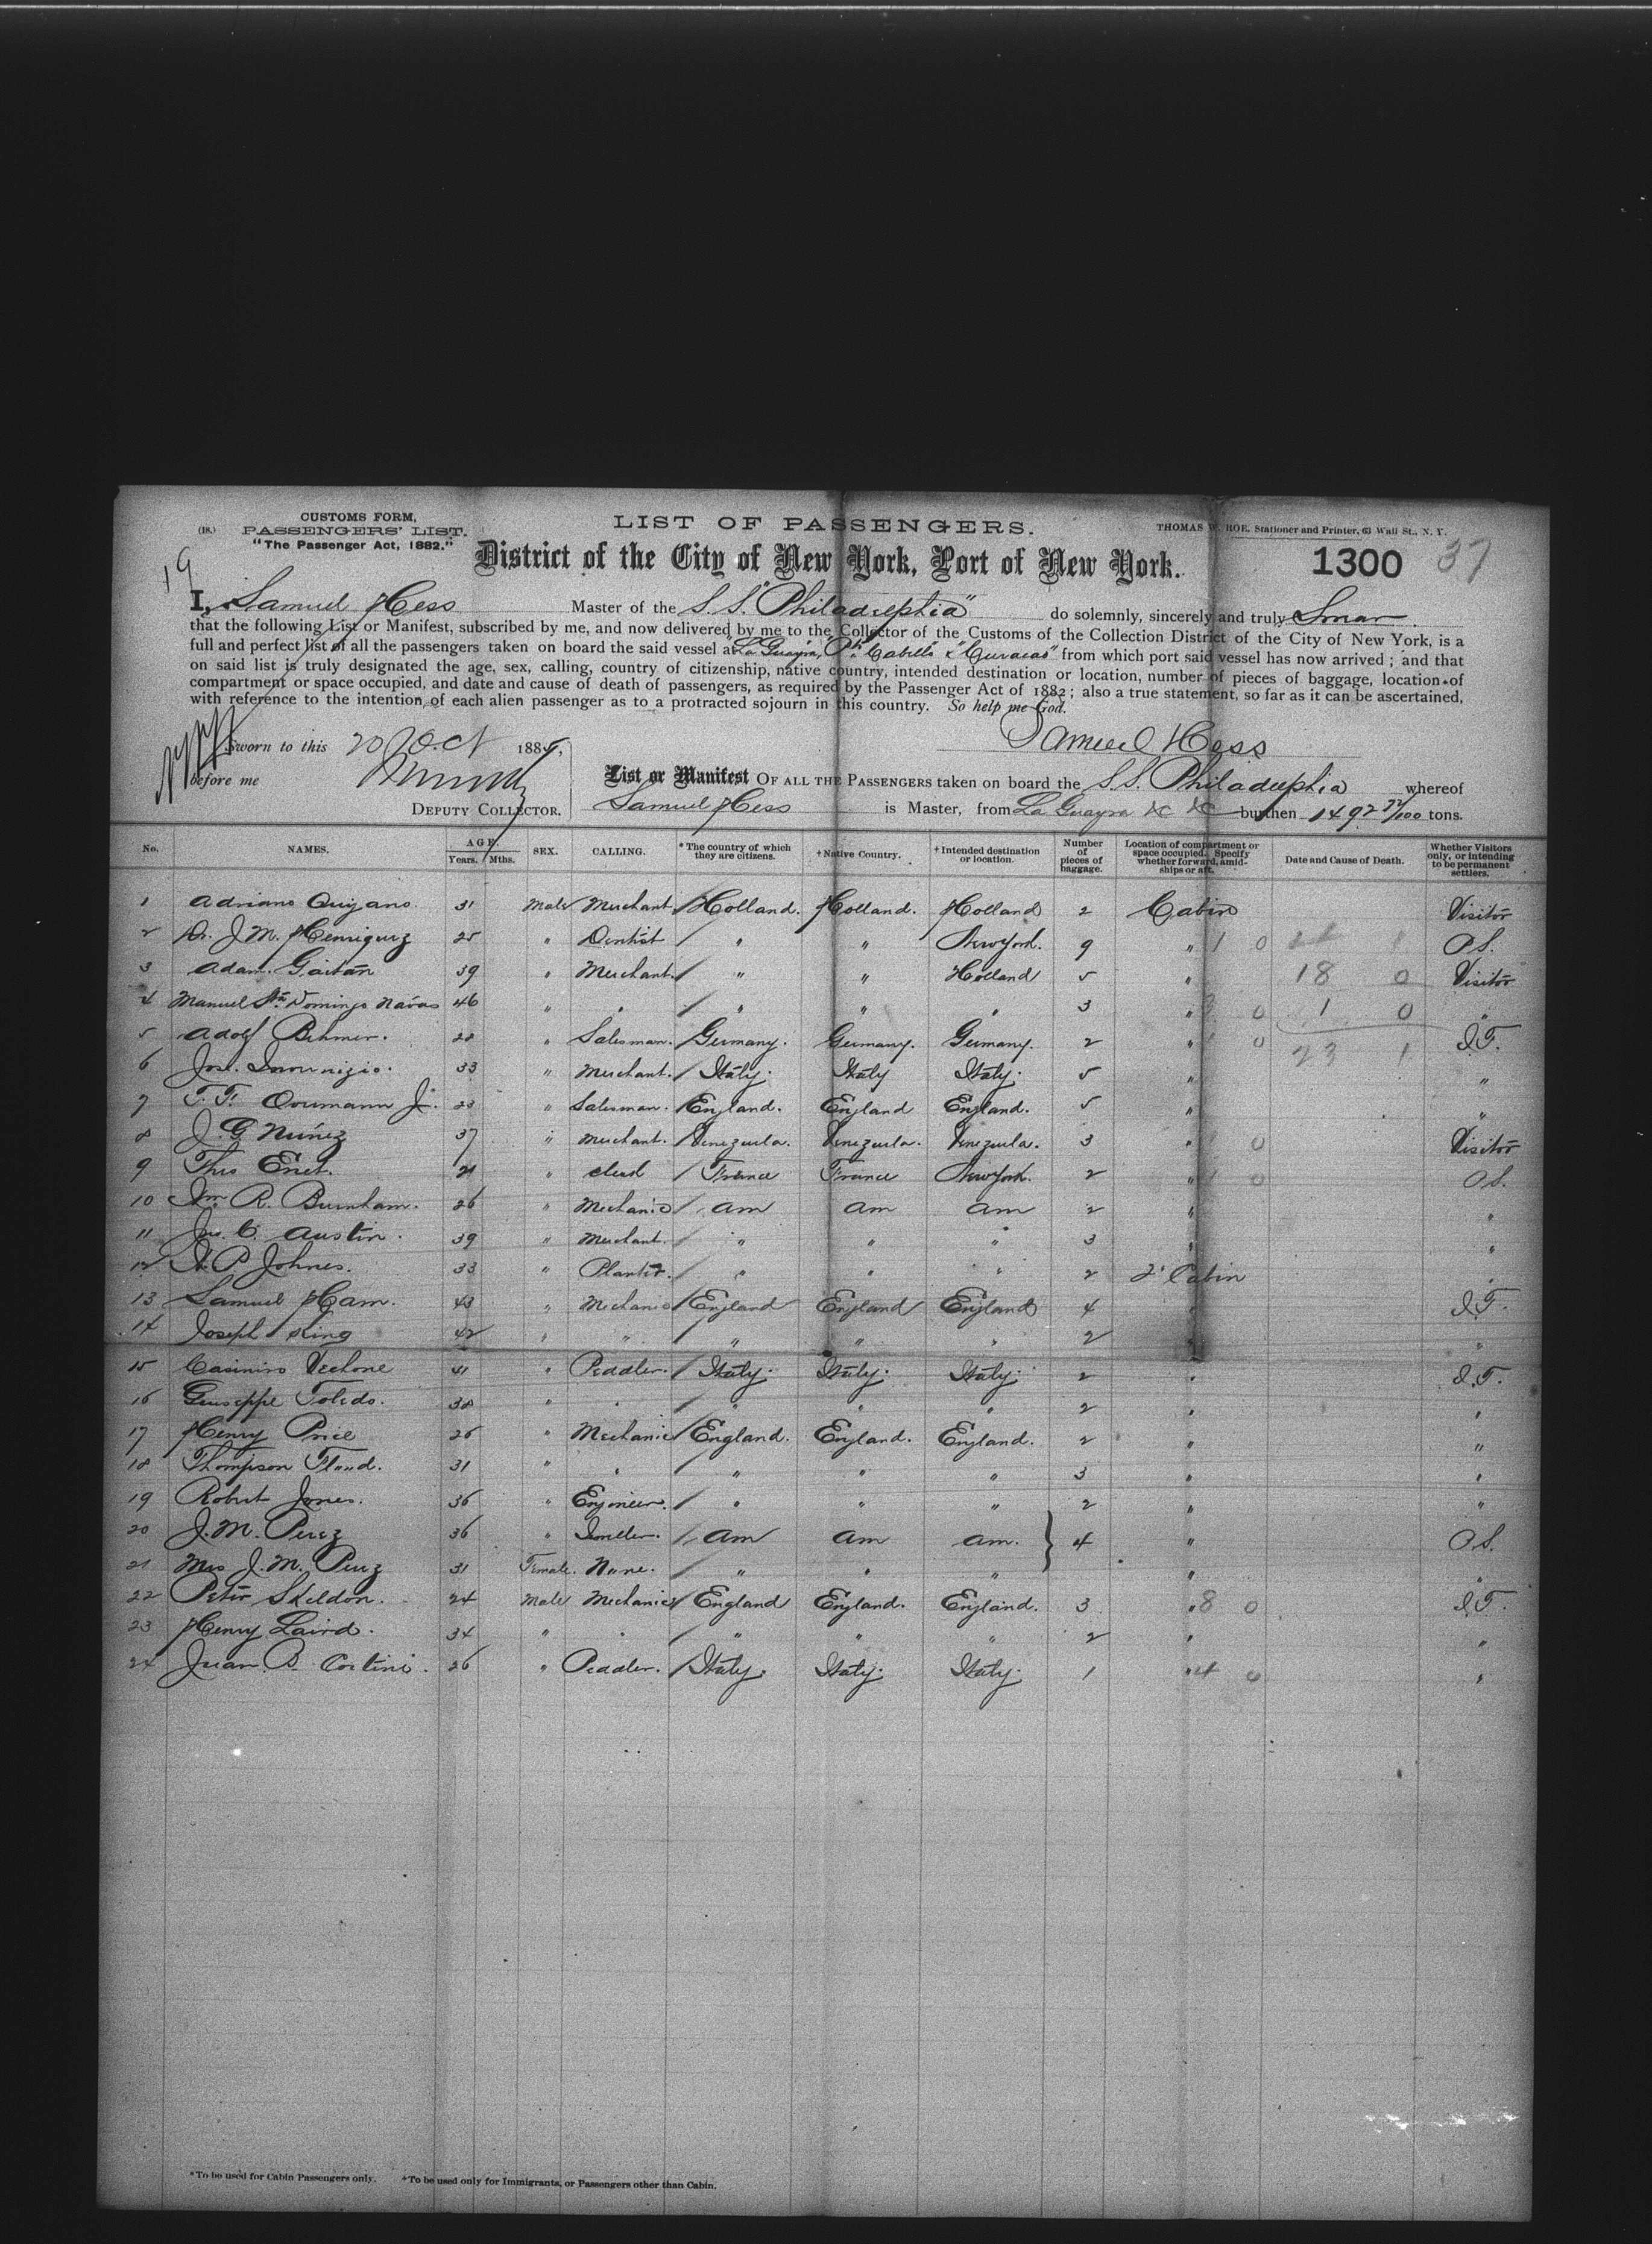 CUSTOMS FORM,
(18.) PASSENGERS' LIST.
"The Passenger Act, 1882."
LIST OF PASSENGERS.
THOMAS W. ROE, Stationer and Printer, 63 Wall St., N. Y.
District of the City of New York, Port of New York.
1300 37
19
I, Samuel Hess Master of the S.S. "Philadelphia" do solemnly, sincerely and truly Swear
that the following List or Manifest, subscribed by me, and now delivered by me to the Collector of the Customs of the Collection District of the City of New York, is a
full and perfect list of all the passengers taken on board the said vessel at "La Guayra, Pto. Cabello & Curacao" from which port said vessel has now arrived ; and that
on said list is truly designated the age, sex, calling, country of citizenship, native country, intended destination or location, number of pieces of baggage, location of
compartment or space occupied, and date and cause of death of passengers, as required by the Passenger Act of 1882 ; also a true statement, so far as it can be ascertained,
with reference to the intention of each alien passenger as to a protracted sojourn in this country. So help me God.
Sworn to this 20 Oct 188
Samuel Hess
before me
DEPUTY COLLECTOR.
List or Manifest OF ALL THE PASSENGERS taken on board the S.S. Philadelphia whereof
Samuel Hess is Master, from La Guayra &c &c burthen 1492 72/100 tons.
No. NAMES. AGE. Years. Mths. SEX. CALLING. *The country of which they are citizens. †Native Country. †Intended destination or location. Number of pieces of baggage. Location of compartment or space occupied. Specify whether forward, amidships or aft. Date and Cause of Death. Whether Visitors only, or intending to be permanent settlers.
1 Adriano Quijano 31 Male Merchant Holland. Holland. Holland 2 Cabin Visitor
2 Dr. J. M. Henriquez 25 " Dentist " " New York. 9 " 1 0 P.S.
3 Adam Gaitan 39 " Merchant " " Holland 5 " 18 0 Visitor
4 Manuel Sta Domingo Navas 46 " " " " " 3 " 0 1 0 "
5 Adolf Behmer. 28 " Salesman. Germany. Germany. Germany. 2 " 0 23 1 I.T.
6 Jos. 33 " Merchant. Italy. Italy Italy. 5 " "
7 T. T. Jr. 23 " Salesman. England. England England. 5 " "
8 J. G. Nuñez 37 " Merchant. Venezuela. Venezuela. Venezuela. 3 " 0 Visitor
9 Theo 21 " Clerk France France New York. 2 " 0 P.S.
10 Wm. R. Burnham. 26 " Mechanic Am Am Am 2 " "
11 Jas. C. Austin. 39 " Merchant. " " " 3 " "
12 P. Johnes. 33 " Planter. " " " 2 2d Cabin "
13 Samuel Ham. 43 " Mechanic England England England 4 " I.T.
14 Joseph King 42 " " " " " 2 " "
15 Casimiro 41 " Peddler. Italy. Italy. Italy. 2 " I.T.
16 Giuseppe Toledo. 38 " " " " " 2 " "
17 Henry Price 26 " Mechanic England. England. England. 2 " "
18 Thompson Flood. 31 " " " " " 3 " "
19 Robert Jones. 36 " Engineer. " " " 2 " "
20 J. M. Perez 36 " Am Am Am. 4 " P.S.
21 Mrs J. M. Perez 31 Female. None. " " " " "
22 Peter Skeldon. 24 Male Mechanic England England. England. 3 " 8 0 I.T.
23 Henry Laird. 34 " " " " " 2 " "
24 Juan B. Cortini. 26 " Peddler. Italy. Italy. Italy. 1 " 4 0 "
*To be used for Cabin Passengers only. †To be used only for Immigrants, or Passengers other than Cabin.